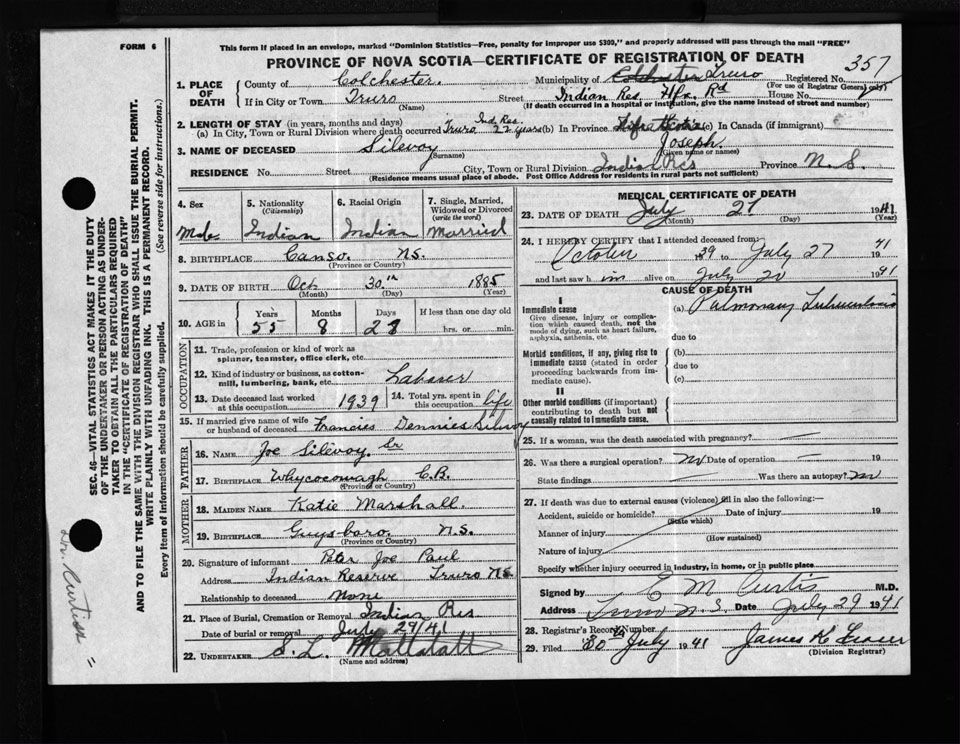 FORM 6
This form if placed in an envelope, marked "Dominion Statistics—Free, penalty for improper use $300," and properly addressed will pass through the mail "FREE"
PROVINCE OF NOVA SCOTIA—CERTIFICATE OF REGISTRATION OF DEATH
357
1. PLACE OF DEATH
County of Colchester. Municipality of Colchester Truro Registered No.
(For use of Registrar General only)
If in City or Town Truro Street Indian Res. Hfx. Rd House No.
(Name) (If death occurred in a hospital or institution, give the name instead of street and number)
2. LENGTH OF STAY (in years, months and days)
(a) In City, Town or Rural Division where death occurred Truro Ind Res. 22 years (b) In Province (c) In Canada (if immigrant)
3. NAME OF DECEASED Silevoy Joseph.
(Surname) (Given name or names)
RESIDENCE No. Street City, Town or Rural Division Indian Res Province N.S.
(Residence means usual place of abode. Post Office Address for residents in rural parts not sufficient)
4. Sex
5. Nationality (Citizenship)
6. Racial Origin
7. Single, Married, Widowed or Divorced (write the word)
Male Indian Indian Married
8. BIRTHPLACE Canso. N.S.
(Province or Country)
9. DATE OF BIRTH Oct 30th 1885
(Month) (Day) (Year)
10. AGE in Years Months Days If less than one day old
55 8 27 hrs. or min.
OCCUPATION
11. Trade, profession or kind of work as spinner, teamster, office clerk, etc.
12. Kind of industry or business, as cotton-mill, lumbering, bank, etc. Labourer
13. Date deceased last worked at this occupation 1939 14. Total yrs. spent in this occupation life
15. If married give name of wife or husband of deceased Francies Dennies Silevoy
FATHER
16. NAME Joe Silevoy. Sr
17. BIRTHPLACE Whycocomagh C.B.
(Province or Country)
MOTHER
18. MAIDEN NAME Katie Marshall.
19. BIRTHPLACE Guysboro N.S.
(Province or Country)
20. Signature of informant Peter Joe Paul
Address Indian Reserve Truro N.S.
Relationship to deceased None
21. Place of Burial, Cremation or Removal Indian Res
Date of burial or removal July 29/41
22. UNDERTAKER S.L. Mattatall
(Name and address)
MEDICAL CERTIFICATE OF DEATH
23. DATE OF DEATH July 27 1941
(Month) (Day) (Year)
24. I HEREBY CERTIFY that I attended deceased from:
October 1939 to July 27 1941
and last saw him alive on July 20 1941
CAUSE OF DEATH
I
Immediate cause (a) Pulmonary Tuberculosis
Give disease, injury or complication which caused death, not the mode of dying, such as heart failure, asphyxia, asthenia, etc.
due to
Morbid conditions, if any, giving rise to immediate cause (stated in order proceeding backwards from immediate cause).
(b)
due to
(c)
II
Other morbid conditions (if important) contributing to death but not causally related to immediate cause.
25. If a woman, was the death associated with pregnancy? —
26. Was there a surgical operation? no Date of operation — 19
State findings — Was there an autopsy? no
27. If death was due to external causes (violence) fill in also the following:—
Accident, suicide or homicide? Date of injury 19
(State which)
Manner of injury
(How sustained)
Nature of injury
Specify whether injury occurred in industry, in home, or in public place
Signed by E M Curtis M.D.
Address Truro N.S. Date July 29 1941
28. Registrar's Record Number
29. Filed 30 July 1941 James K Fraser
(Division Registrar)
SEC. 46—VITAL STATISTICS ACT MAKES IT THE DUTY
OF THE UNDERTAKER OR PERSON ACTING AS UNDER-
TAKER TO OBTAIN ALL THE PARTICULARS REQUIRED
IN THE "CERTIFICATE OF REGISTRATION OF DEATH"
AND TO FILE THE SAME WITH THE DIVISION REGISTRAR WHO SHALL ISSUE THE BURIAL PERMIT.
WRITE PLAINLY WITH UNFADING INK. THIS IS A PERMANENT RECORD.
Every item of information should be carefully supplied. (See reverse side for instructions.)